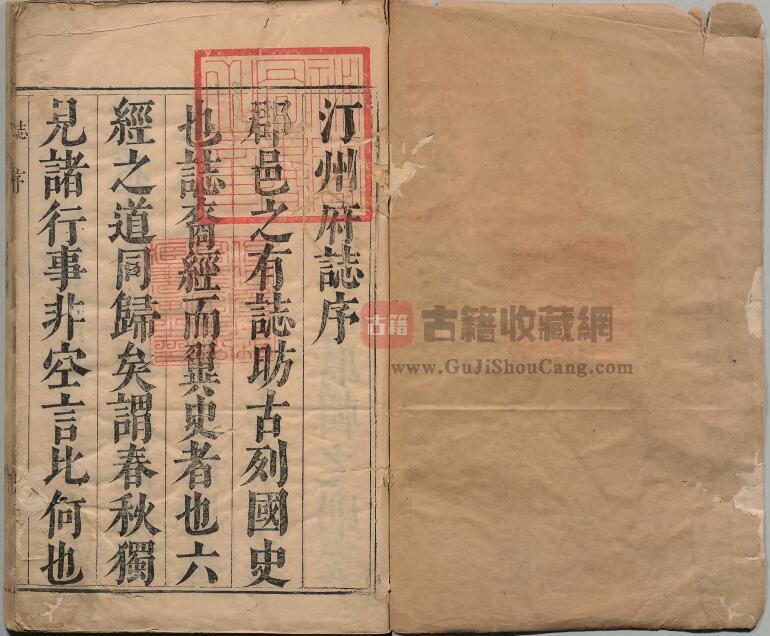 汀州府誌序
郡邑之有誌昉古列國史
也誌裔經而翼史者也六
經之道同歸矣謂春秋獨
見諸行事非空言比何也
誌序
古籍
古籍收藏網
www.GuJiShouCang.com